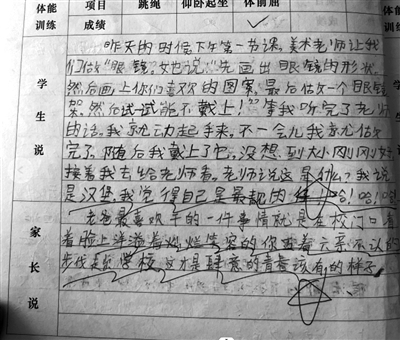 体能训练 项目 跳绳 仰卧起坐 体前屈
成绩
昨天的时候下午第一节课。美术老师让我
们做“眼镜”她说“先画出眼镜的形状。
然后画上你们喜欢的图案，最后估个眼镜
架。然后试一试能不戴上！”等我听完了老师
的话。我就动起手来。不一会儿我就做
完了，随后我戴上了它。没想到大小刚刚好
接着我去给老师看。老师说这是什么？我说
是汉堡。我觉得自己是最靓的仔！哈！哈！
学生说
老爸最喜欢年的一件事情就是在校门口看
着脸上洋溢着灿烂笑容的你迈着六亲不认的
步伐走出学校，这才是肆意的青春该有的样子
家长说